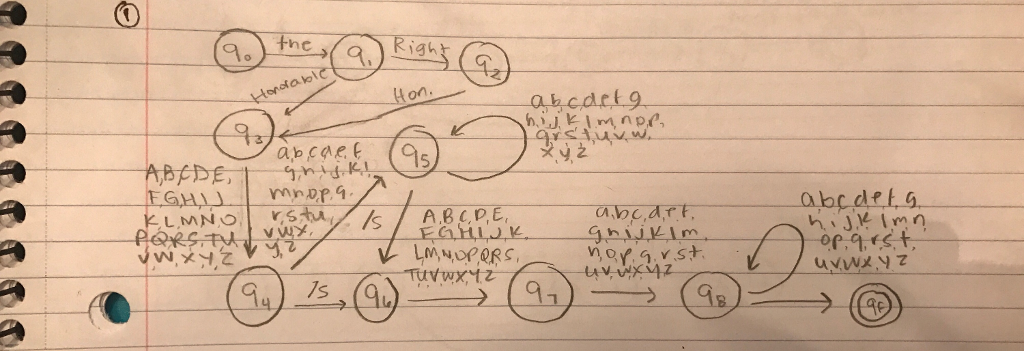 1
q0 the q1 Right q2
Honorable
Hon.
q3
q5
a,b,c,d,e,f,g
h,i,j,k,l,m,n,o,p,
q,r,s,t,u,v,w,
x,y,z
a,b,c,d,e,f
g,h,i,j,k,l
m,n,o,p,q,
r,s,t,u,
v,w,x,
y,z
A,B,C,D,E,
F,G,H,I,J
K,L,M,N,O
P,Q,R,S,T,U
V,W,X,Y,Z
/s
A,B,C,D,E,
F,G,H,I,J,K
L,M,N,O,P,Q,R,S,
T,U,V,W,X,Y,Z
a,b,c,d,e,f,
g,h,i,j,k,l,m
n,o,p,q,r,s,t,
u,v,w,x,y,z
a,b,c,d,e,f,g,
h,i,j,k,l,m,n
o,p,q,r,s,t,
u,v,w,x,y,z
q4 /s q6 q7 q8 qf